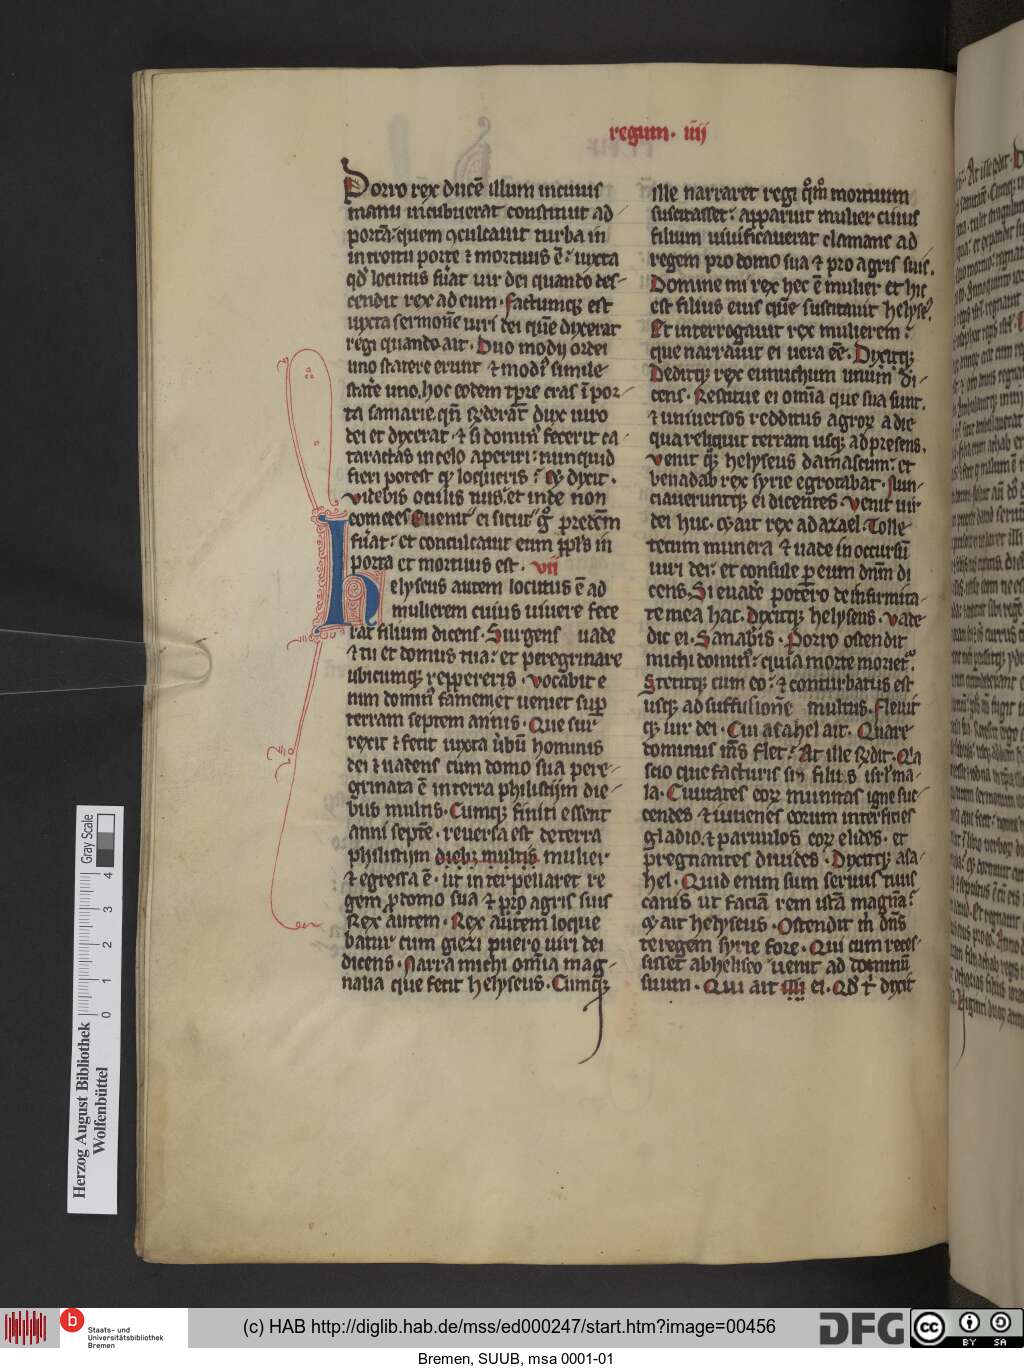 regum · iiij
Porro rex ducē illum in cuius
manu incubuerat constituit ad
portā · quem ꝯculcauit turba in
introitu porte ⁊ mortuus ē · iuxta
qd' locutus fu'at uir dei quando des-
cendit rex ad eum · factumq; est
iuxta sermonē uiri dei quē dixerat
regi quando ait · Duo modij ordei
uno statere erunt ⁊ modi' simile
statē uno, hoc eodem tp̄re cras ī por-
ta samarie. qn̄ rn̄derat' dux uiro
dei et dyxerat · ⁊ si domin' fecerit ca
taractas in celo aperiri: nunquid
fieri potest qd' loqueris ? Qui dyxit ·
videbis oculis tuis: et inde non
comedes Euenit ei sicut p̄dem
fu'at: et conculcauit eum pp̄ls in
porta et mortuus est · vii
helyseus autem locutus ē ad
mulierem cuius uiuere fece
rat filium dicens · Surgens uade
⁊ tu et domus tua: et peregrinare
ubicumq; reppereris · vocabit e
nim domin' famem et ueniet sup
terram septem annis · Que sur
rexit ⁊ fecit iuxta ubū hominis
dei ⁊ uadens cum domo sua pere-
grinata ē in terra philistijm die-
bus multis · Cumq; finiti essent
anni septē · reuersa est de terra
philistijm dieb; multis mulier
⁊ egressa ē · ut interpellaret re
gem ꝓ domo sua ⁊ pro agris suis
Rex autem · Rex autem loque
batur cum giezi puero uiri dei
dicens · Narra michi om̄ia mag-
nalia que fecit helyseus · Cumq;
ille narraret regi qm̊ mortuum
suscitasset: apparuit mulier cuius
filium uiuificauerat clamans ad
regem pro domo sua ⁊ pro agris suis.
Domine mi rex hec ē mulier et hic
est filius eius quē suscitauit helyse'
Et interrogauit rex mulierem:
que narrauit ei uera eē · Dyxitq;
Deditq; rex eunuchum unum di-
cens · Restitue ei om̄ia que sua sunt.
⁊ uniuersos redditus agroꝝ a die
qua reliquit terram usq; ad presens.
Venit q; helyseus damascum: et
benadab rex syrie egrotabat · Nun-
ciaueruntq; ei dicentes · Venit uir
dei huc · et ait rex ad azael · Tolle
tecum munera ⁊ uade in occursū
uiri dei: et consule per eum dn̄m di
cens, Si euadē potero de infirmita-
te mea hac. Dyxitq; helyseus · Vade
dic ei · Sanabis · Porro ostendit
michi domin': quia morte moriet'.
Stetitq; cum eo: ⁊ conturbatus est
usq; ad suffusionē multus · Fleuit
q; uir dei · Cui asahel ait · Quare
dominus m̄s flet? At ille rn̄dit · Q'a
scio que facturus sis filiis isrl' ma-
la · Ciuitates eoꝝ munitas igne suc-
cendes ⁊ iuuenes eorum interficies
gladio. ⁊ paruulos eoꝝ elides · et
pregnantes diuides · Dyxitq; asa-
hel · Quid enim sum seruus tuus
canis ut faciā rem istā magnā:
Et ait helyseus · Ostendit m̄ dn̄s
te regem syrie fore · Qui cum reces-
sisset ab heliseo uenit ad dominū
suum · Qui ait illi ei · Qd' t' dyxit
Herzog August Bibliothek
Wolfenbüttel
Gray Scale
0 1 2 3 4
b Staats- und
Universitätsbibliothek
Bremen
(c) HAB http://diglib.hab.de/mss/ed000247/start.htm?image=00456
DFG
cc BY SA
Bremen, SUUB, msa 0001-01